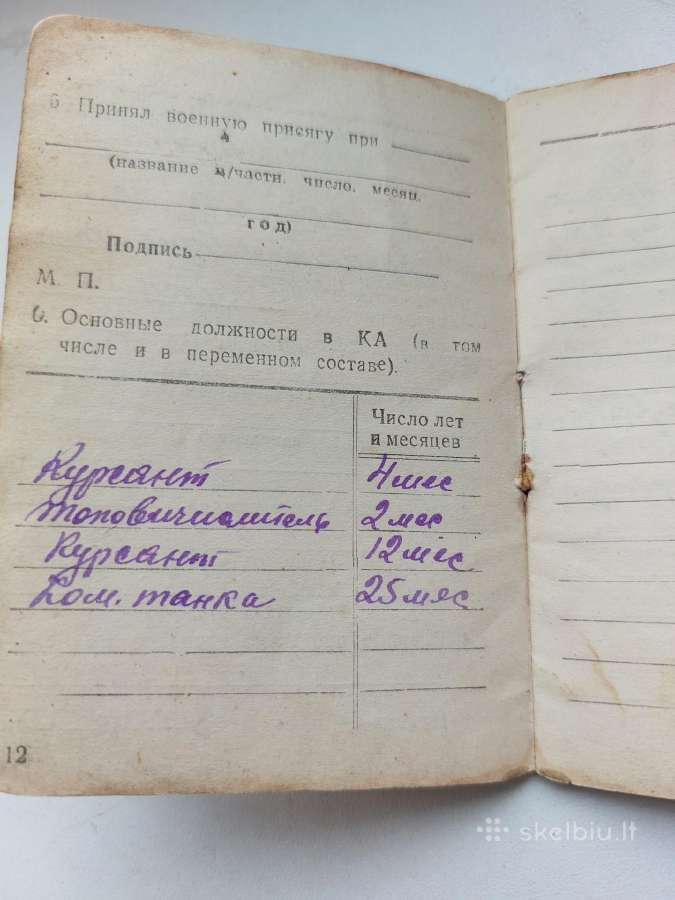 6 Принял военную присягу при
(название в/части, число, месяц,
год)
Подпись
М. П.
6. Основные должности в КА (в том
числе и в переменном составе).
Число лет
и месяцев
Курсант 4 мес
Топовычислитель 2 мес
Курсант 12 мес
Ком. танка 25 мяс
12
skelbiu.lt